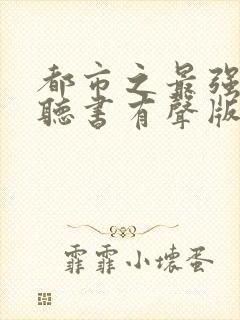 都市之最强
聽書有聲版
霏霏小壞蛋